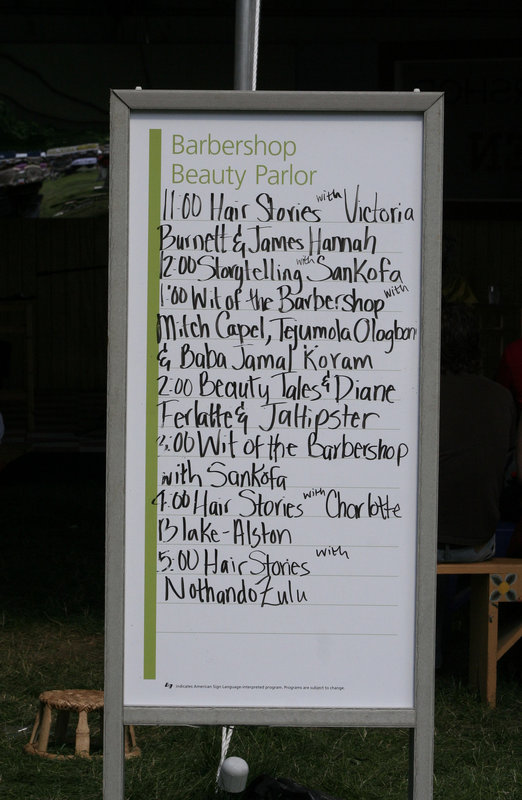 Barbershop
Beauty Parlor
11:00 Hair Stories with Victoria
Burnett & James Hannah
12:00 Storytelling with Sankofa
1:00 Wit of the Barbershop with
Mitch Capel, Tejumola Ologboni
& Baba Jamal Koram
2:00 Beauty Tales & Diane
Ferlatte & Jahipster
3:00 Wit of the Barbershop
with Sankofa
4:00 Hair Stories with Charlotte
Blake-Alston
5:00 Hair Stories with
Nothando Zulu
indicates American Sign Language-interpreted program. Programs are subject to change.